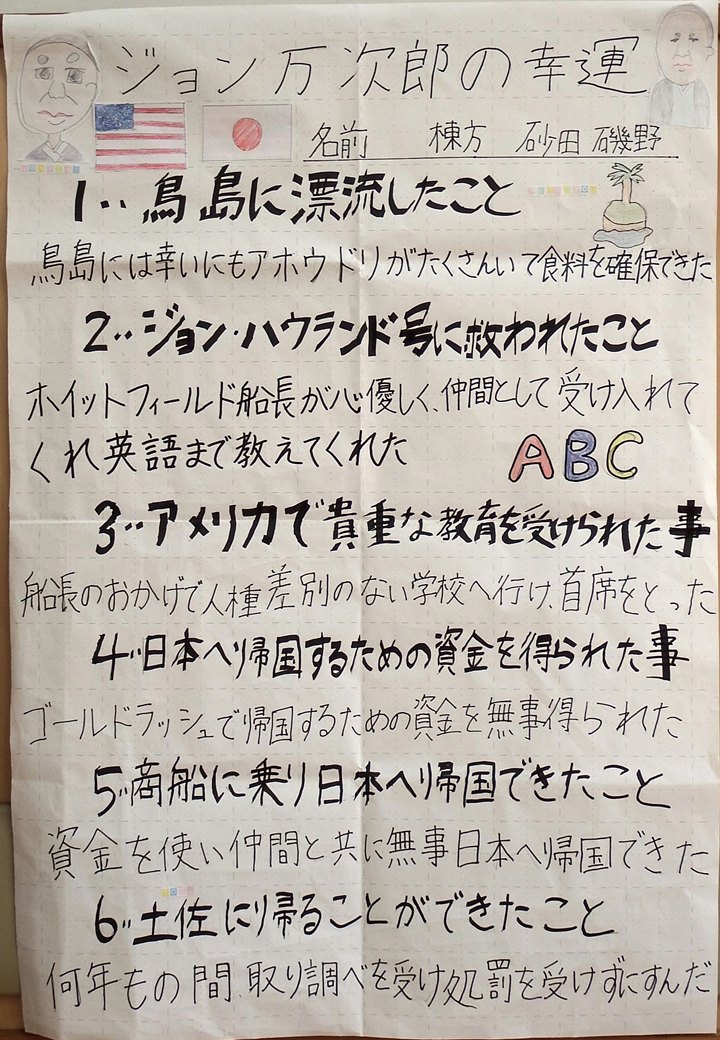 ジョン万次郎の幸運
名前 棟方 砂田 磯野
1‥鳥島に漂流したこと
鳥島には幸いにもアホウドリがたくさんいて食料を確保できた
2‥ジョン・ハウランド号に救われたこと
ホイットフィールド船長が心優しく、仲間として受け入れて
くれ英語まで教えてくれた
ABC
3‥アメリカで貴重な教育を受けられた事
船長のおかげで人種差別のない学校へ行け、首席をとった
4‥日本へ帰国するための資金を得られた事
ゴールドラッシュで帰国するための資金を無事得られた
5‥商船に乗り日本へ帰国できたこと
資金を使い仲間と共に無事日本へ帰国できた
6‥土佐に帰ることができたこと
何年もの間、取り調べを受け処罰を受けずにすんだ